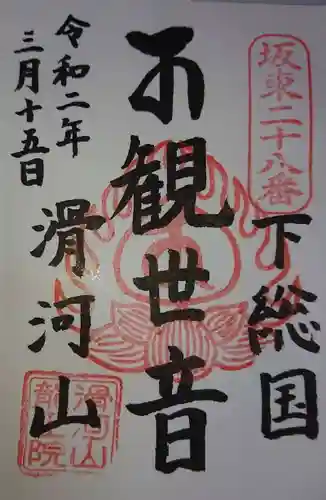 坂東二十八番
下総国
不観世音
滑河山
令和二年
三月十五日
滑河山
龍正院